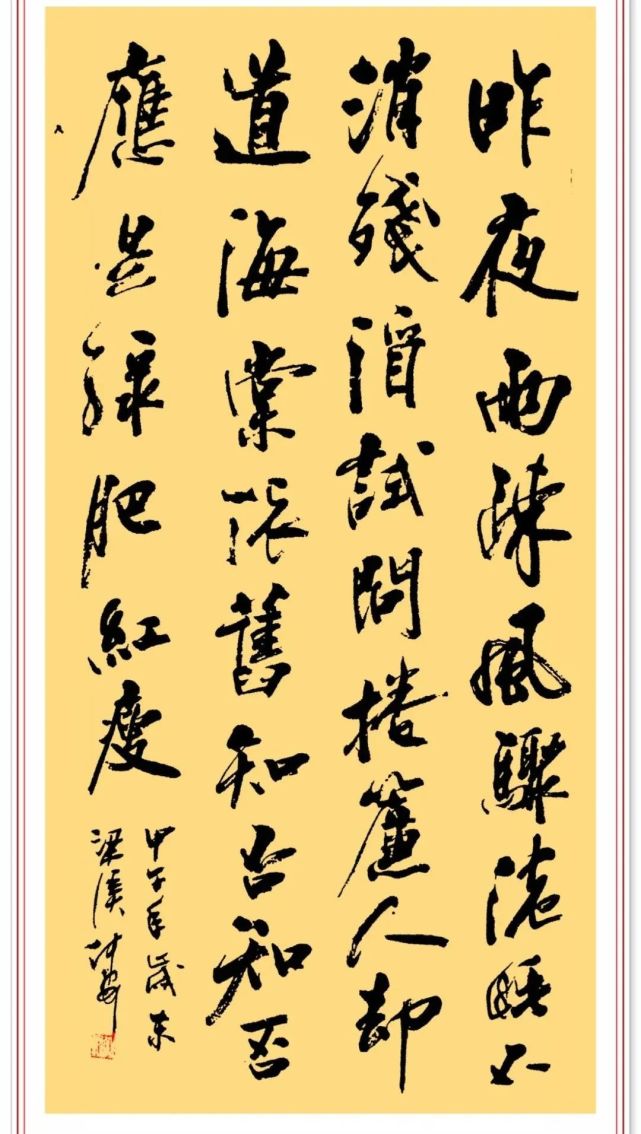 昨夜雨疎風驟濃睡不
消殘酒試問捲簾人却
道海棠依舊知否知否
應是緑肥紅瘦
甲午年歲末
梁溪